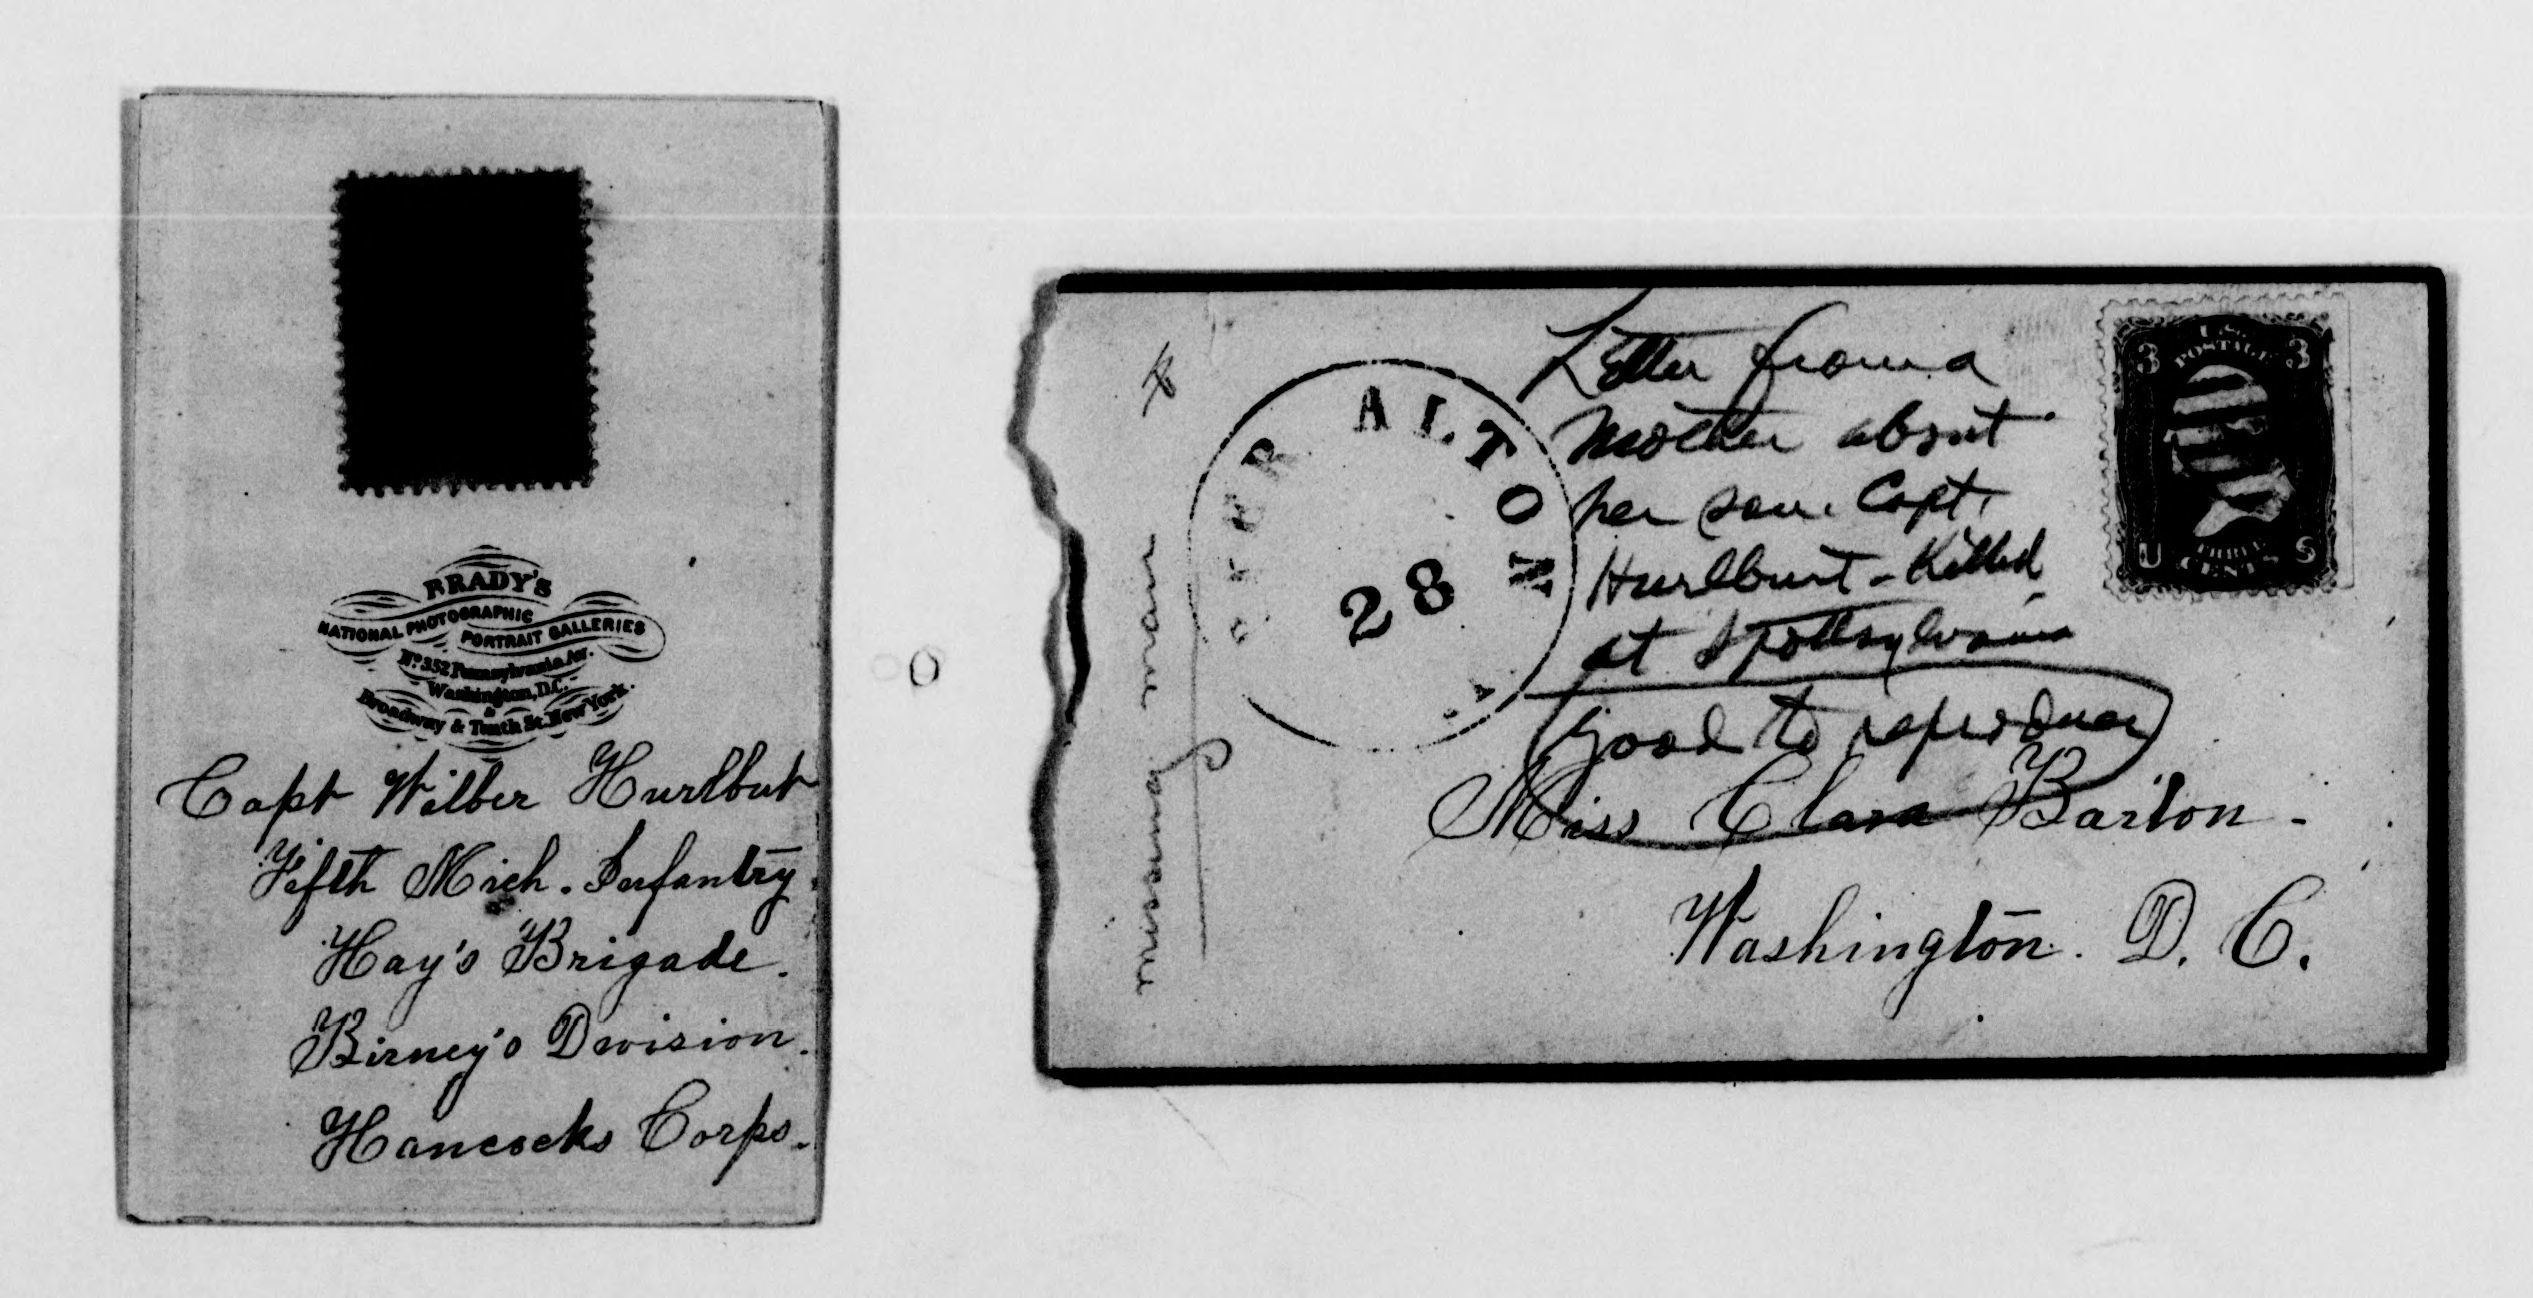 BRADY'S
NATIONAL PHOTOGRAPHIC
PORTRAIT GALLERIES
No. 352 Pennsylvania Av.
Washington, D.C.
&
Broadway & Tenth St. New York.
Capt Wilber Hurlbut
Fifth Mich. Infantry.
Hay's Brigade.
Birney's Division.
Hancocks Corps.
UPPER ALTON
28
Letter from a
Mother about
her son. Capt.
Hurlburt - Killed
at Spottsylvania
Good to reproduce
U.S.
POSTAGE
3 3
U S
THREE
CENTS
Miss Clara Barton -
Washington. D. C.
missing man